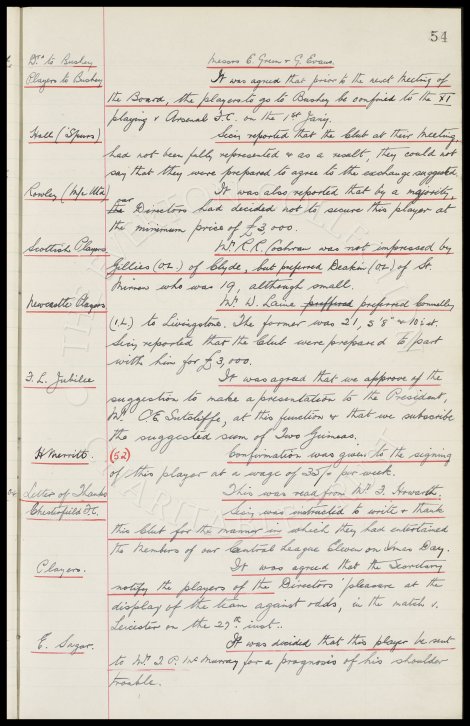 54
Drs to Bushey Messrs E. Green & G. Evans.
Players to Bushey It was agreed that prior to the next Meeting of
the Board, the players to go to Bushey be confined to the XI
playing v Arsenal F.C. on the 1st Jany.
Hall (Spurs) Secy reported that the Club at their meeting,
had not been fully represented & as a result, they could not
say that they were prepared to agree to the exchange suggested.
Rowley (M/c Utd) It was also reported that by a majority,
our
the Directors had decided not to secure this player at
the minimum price of £3,000.
Scottish Players Mr R.R. Cochran was not impressed by
Gillies (O.L.) of Clyde, but preferred Deakin (O.L.) of St.
Mirren who was 19, although small.
Newcastle Players Mr W. Laine preffered preferred Connelly
(I.L.) to Livingstone. The former was 21, 5'8" & 10½ st.
Secy reported that the Club were prepared to part
with him for £3,000.
F. L. Jubilee It was agreed that we approve of the
suggestion to make a presentation to the President,
Mr C.E. Sutcliffe, at this function & that we subscribe
the suggested sum of Two Guineas.
H. Merritt. (52) Confirmation was given to the signing
of this player at a wage of 35/- per week.
Letter of Thanks This was read from Mr F. Howarth.
Chesterfield F.C. Secy was instructed to write & thank
this Club for the manner in which they had entertained
the Members of our Central League Eleven on Xmas Day.
Players. It was agreed that the Secretary
notify the players of the Directors' pleasure at the
display of the team against odds, in the match v.
Leicester on the 27th inst..
E. Sagar. It was decided that this player be sent
to Mr T. P. McMurray for a prognosis of his shoulder
trouble.